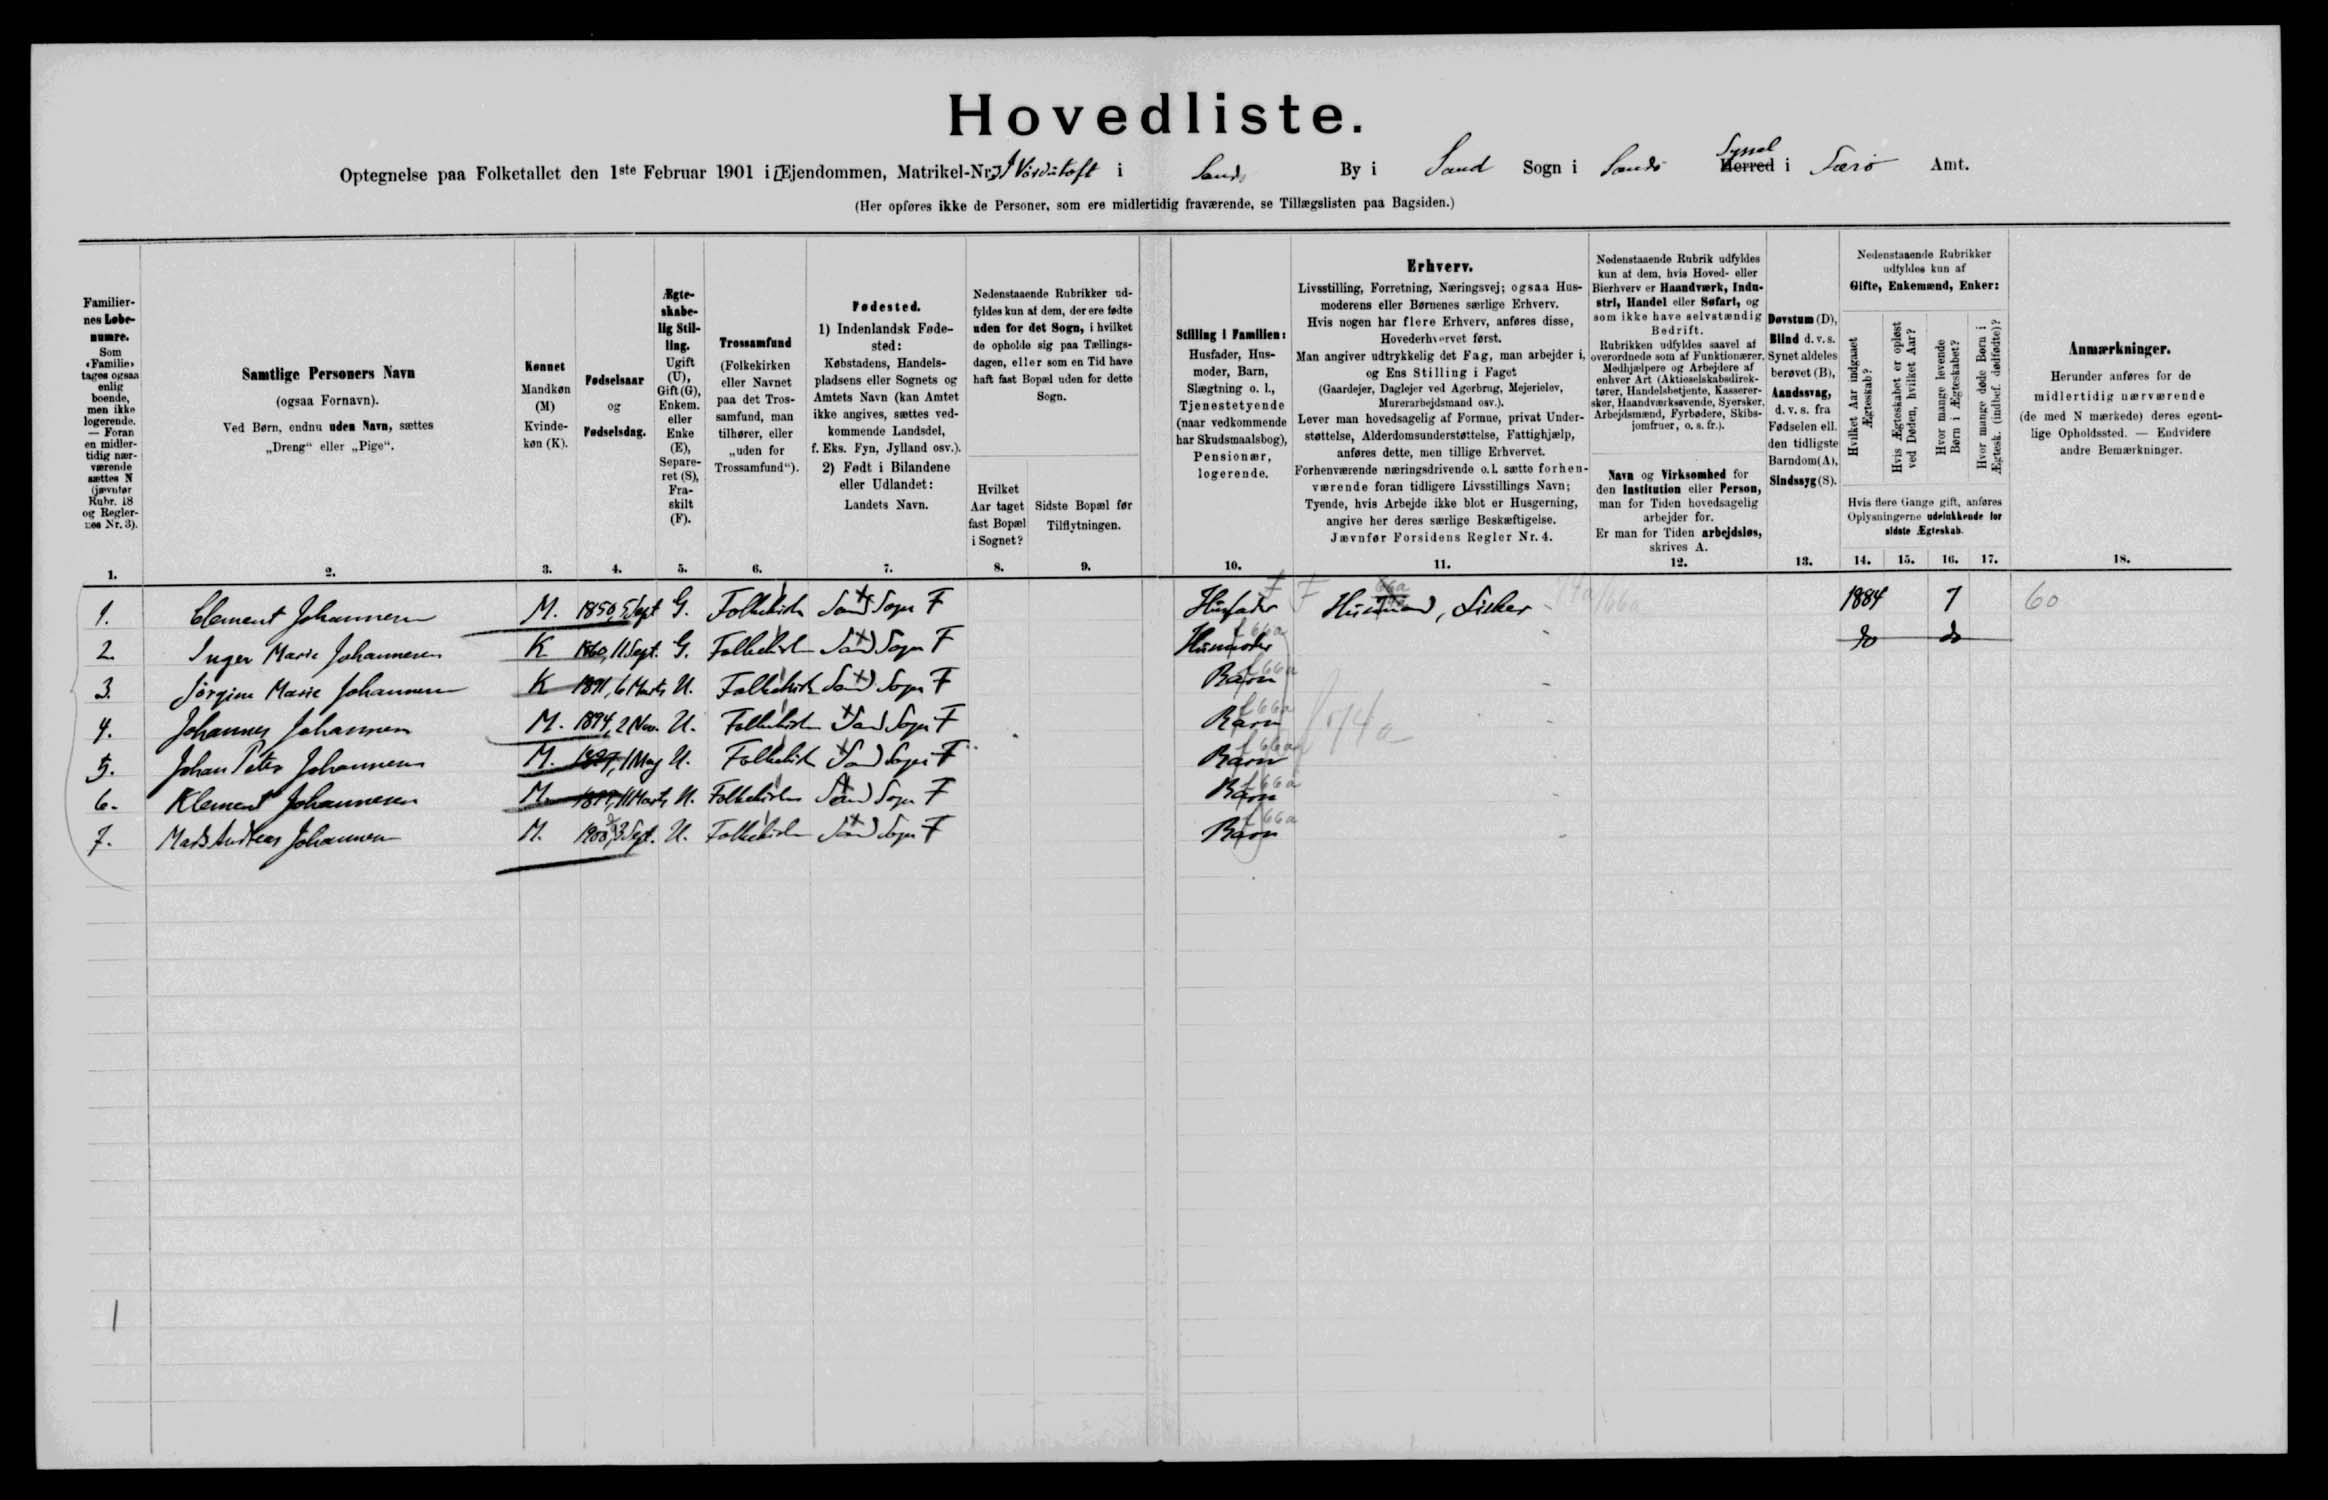 Hovedliste.
Optegnelse paa Folketallet den 1ste Februar 1901 i [Ejendommen, Matrikel-Nr.] i Sand By i Sand Sogn i Sandø Syssel Herred i Færø Amt.
(Her opføres ikke de Personer, som ere midlertidig fraværende, se Tillægslisten paa Bagsiden.)
Familier-
nes Løbe-
numre.
Som
«Familie»
tages ogsaa
enlig
boende,
men ikke
logerende.
— Foran
en midler-
tidig nær-
værende
sættes N
(jævnfør
Rubr. 18
og Regler-
nes Nr. 3).
1.
Samtlige Personers Navn
(ogsaa Fornavn).
Ved Børn, endnu uden Navn, sættes
„Dreng“ eller „Pige“.
2.
Kønnet
Mandkøn
(M)
Kvinde-
køn (K).
3.
Fødselsaar
og
Fødselsdag.
4.
Ægte-
skabe-
lig Stil-
ling.
Ugift
(U),
Gift (G),
Enkem.
eller
Enke
(E),
Separe-
ret (S),
Fra-
skilt
(F).
5.
Trossamfund
(Folkekirken
eller Navnet
paa det Tros-
samfund, man
tilhører, eller
„uden for
Trossamfund“).
6.
Fødested.
1) Indenlandsk Føde-
sted:
Købstadens, Handels-
pladsens eller Sognets og
Amtets Navn (kan Amtet
ikke angives, sættes ved-
kommende Landsdel,
f. Eks. Fyn, Jylland osv.).
2) Født i Bilandene
eller Udlandet:
Landets Navn.
7.
Nedenstaaende Rubrikker ud-
fyldes kun af dem, der ere fødte
uden for det Sogn, i hvilket
de opholde sig paa Tællings-
dagen, eller som en Tid have
haft fast Bopæl uden for dette
Sogn.
Hvilket
Aar taget
fast Bopæl
i Sognet?
8.
Sidste Bopæl før
Tilflytningen.
9.
Stilling i Familien:
Husfader, Hus-
moder, Barn,
Slægtning o. l.,
Tjenestetyende
(naar vedkommende
har Skudsmaalsbog),
Pensionær,
logerende.
10.
Erhverv.
Livsstilling, Forretning, Næringsvej; ogsaa Hus-
moderens eller Børnenes særlige Erhverv.
Hvis nogen har flere Erhverv, anføres disse,
Hovederhvervet først.
Man angiver udtrykkelig det Fag, man arbejder i,
og Ens Stilling i Faget
(Gaardejer, Daglejer ved Agerbrug, Mejerielev,
Murerarbejdsmand osv.).
Lever man hovedsagelig af Formue, privat Under-
støttelse, Alderdomsunderstøttelse, Fattighjælp,
anføres dette, men tillige Erhvervet.
Forhenværende næringsdrivende o. l. sætte forhen-
værende foran tidligere Livsstillings Navn;
Tyende, hvis Arbejde ikke blot er Husgerning,
angive her deres særlige Beskæftigelse.
Jævnfør Forsidens Regler Nr. 4.
11.
Nedenstaaende Rubrik udfyldes
kun af dem, hvis Hoved- eller
Bierhverv er Haandværk, Indu-
stri, Handel eller Søfart, og
som ikke have selvstændig
Bedrift.
Rubrikken udfyldes saavel af
overordnede som af Funktionærer,
Medhjælpere og Arbejdere af
enhver Art (Aktieselskabsdirek-
tører, Handelsbetjente, Kasserer-
sker, Haandværkssvende, Syersker,
Arbejdsmænd, Fyrbødere, Skibs-
jomfruer, o. s. fr.).
Navn og Virksomhed for
den Institution eller Person,
man for Tiden hovedsagelig
arbejder for.
Er man for Tiden arbejdsløs,
skrives A.
12.
Døvstum (D),
Blind d. v. s.
Synet aldeles
berøvet (B),
Aandssvag,
d. v. s. fra
Fødselen ell.
den tidligste
Barndom (A),
Sindssyg (S).
13.
Nedenstaaende Rubrikker
udfyldes kun af
Gifte, Enkemænd, Enker:
Hvilket Aar indgaaet
Ægteskab?
Hvis Ægteskabet er opløst
ved Døden, hvilket Aar?
Hvor mange levende
Børn i Ægteskabet?
Hvor mange døde Børn i
Ægtesk. (indbef. dødfødte)?
Hvis flere Gange gift, anføres
Oplysningerne udelukkende for
sidste Ægteskab.
14. 15. 16. 17.
Anmærkninger.
Herunder anføres for de
midlertidig nærværende
(de med N mærkede) deres egent-
lige Opholdssted. — Endvidere
andre Bemærkninger.
18.
1. Clement Johannesen M. 1850, 5 Sept G. Folkekirken Sand Sogn F Husfader F Husmand, Fisker 1884 7 60
2. Inger Marie Johannesen K 1860, 11 Sept. G. Folkekirken Sand Sogn F Husmoder f 66a do do
3. Jörgine Marie Johannesen K 1891, 6 Marts U. Folkekirken Sand Sogn F Barn f 66a
4. Johannes Johannesen M. 1894, 2 Nov. U. Folkekirken Sand Sogn F Barn f 66a
5. Johan Peter Johannesen M. 1897, 1 Maj U. Folkekirken Sand Sogn F Barn f 66a
6. Klement Johannesen M. 1899, 11 Marts U. Folkekirken Sand Sogn F Barn f 66a
7. Mads Andreas Johannesen M. 1900, 3 Sept. U. Folkekirken Sand Sogn F Barn f 66a
1